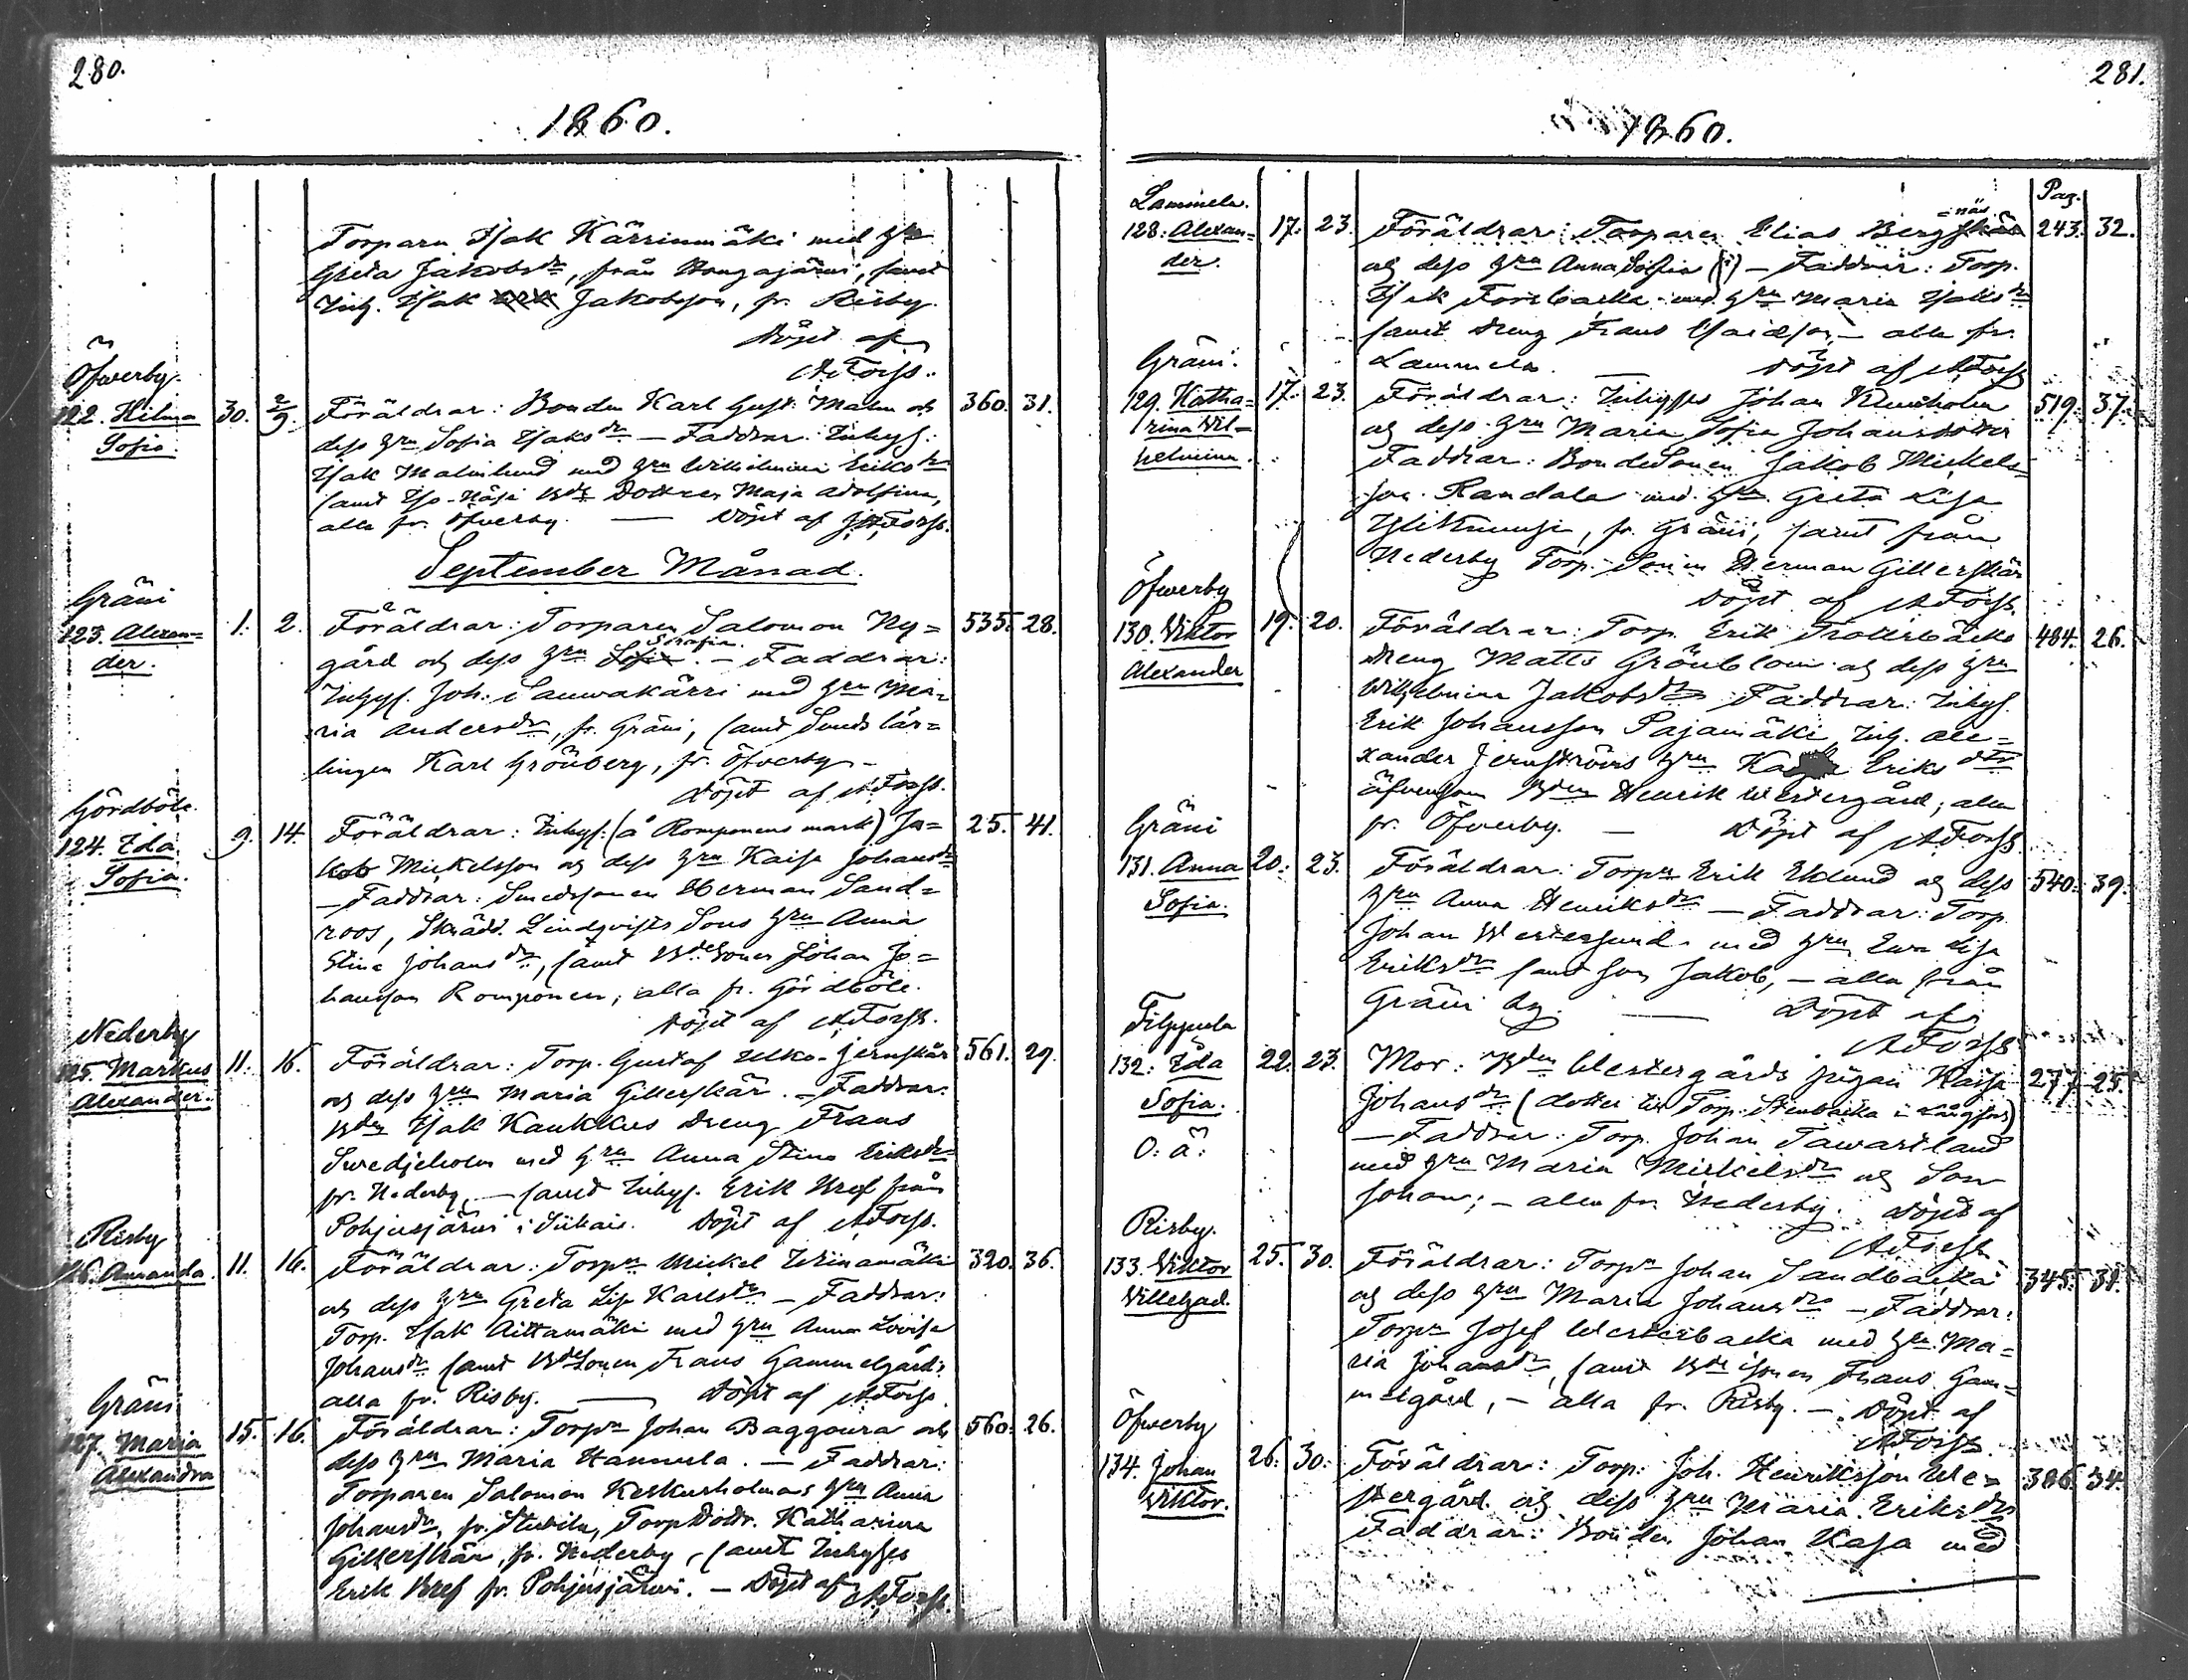 280.
1860.
Torparn Isak Kärrinmäki med hru
Greta Jakobsdr, från Hongajärvi, samt
Inh. Isak Jakobsson, fr. Risby.
Döpt af
A Forss.
Öfwerby.
122. Hilma 30. 2/9. Föräldrar: Bonden Karl Gust: Malm och 360. 31.
Sofia. dess hru Sofia Isaksdr — Faddrar: Inhys:
Isak Malmlund med hru Wilhelmina Eriksdr
samt Bde Dottren Maja Adolfina,
alla fr. Öfverby. — Döpt af A Forss.
September Månad.
Gräni
123. Alexan= 1. 2. Föräldrar: Torparen Salomon Ny= 535. 28.
der. gård och dess hru Serafia. — Faddrar:
Inhys. Joh: Sauwakärri med hru Ma-
ria Andersdr, fr. Gräni, samt Smedslär=
lingen Karl Grönberg, fr. Öfverby —
Döpt af A Forss.
Gördböle.
124. Ida 9. 14. Föräldrar: Inhys: (å Romponens mark) Ja= 25. 41.
Sofia. kob Mickelsson och dess hru Kaisa Johansdr
— Faddrar: Smedssonen Herman Sand=
roos, Skrädd. Lindqvists Sons hru Anna
Stina Johansdr, samt Bdesonen Johan Jo=
hansson Romponen, alla fr. Gördböle.
Döpt af A Forss.
Nederby
125. Markus 11. 16. Föräldrar: Torp. Gustaf Jernskär 561. 29.
Alexander. och dess hru Maria Gillerskär. — Faddrar:
Bden Isak Kaukkus dreng Frans
Swedjeholm med hru Anna Stina Eriksdr
fr. Nederby, — samt Inhys. Erik Bref från
Pohjusjärvi i Siikais. Döpt af A Forss.
Risby
126. Amanda. 11. 16. Föräldrar: Torpn Mickel Wiinamäki 320. 36.
och dess hru Greta Lisa Karlsdr — Faddrar:
Torp. Isak Aittamäki med hru Anna Lovisa
Johansdr samt Bdesonen Frans Gammelgård:
alla fr. Risby. — Döpt af A Forss.
Gräni
127. Maria 15. 16. Föräldrar: Torpn Johan Baggoura och 560. 26.
Alexandra dess hru Maria Hannula. — Faddrar:
Torparen Salomon Keskusholmas hru Anna
Johansdr, fr. TorpDotr. Katharina
Gillerskär, fr. Nederby, samt Inhyses
Erik Bref fr. Pohjusjärvi. — Döpt af A Forss.
281.
1860.
Pag.
Lammela.
=näs.
128. Alexan= 17. 23. Föräldrar: Torparen Elias Berg 243. 32.
der. och dess hru Anna Sofia — Faddrar: Torp.
Isak Forsbacka med hru Maria Isaksdr
samt dreng Frans — alla fr.
Lammela. Döpt af A Forss
Gräni.
129. Katha= 17. 23. Föräldrar: Inhyses Johan 519. 37.
rina Wil= och dess hru Maria Sofia Johansdotter
helmina. Faddrar: BondeSonen Jakob Mickels
son Randala med hru Greta Lisa
fr. Gräni, samt från
Nederby Torp. Sonen Herman Gillerskär
Döpt af A Forss.
Öfwerby
130. Viktor 19. 20. Föräldrar: Torp. Erik 484. 26.
Alexander dreng Matts Grönblom och dess hru
Wilhelmina Jakobsdr Faddrar: Inhys.
Erik Johansson Pajamäki, Inh. Ale=
xander Jernströms hru Eriks dtr
äfvensom Bden Henrik Westergård; alla
fr. Öfverby. — Döpt af A Forss.
Gräni
131. Anna 20. 23. Föräldrar: Torpn Erik Eklund och dess 540. 39.
Sofia. hru Anna Henriksdr — Faddrar: Torp.
Johan Westersund med hru Ewa Lisa
Eriksdr samt son Jakob, — alla från
Gräni by. — Döpt af
A Forss
Filppula
132. Ida 22. 23. Mor: Bden Westergårds pigan Kaisa 277. 25.
Sofia. Johansdr (dotter till Torp. Stenbacka i Långfors)
O. ä: — Faddrar: Torp. Johan Tawastland
med hru Maria Mickelsdr och Son
Johan; — alla fr. Nederby. Döpt af
A Forss
Risby.
133. Viktor 25. 30. Föräldrar: Torpn Johan Sandbacka 345. 38.
Villehad. och dess hru Maria Johansdr — Faddrar:
Torpn Josef Westerbacka med hru Ma=
ria Johansdr, samt Bdesonen Frans Gam=
melgård, — alla fr. Risby. — Döpt af
A Forss
Öfwerby
134. Johan 26. 30. Föräldrar: Torp: Joh. Henriksson We= 386. 34.
Viktor. stergård och dess hru Maria Eriksdr
Faddrar: Bonden Johan Kasa med